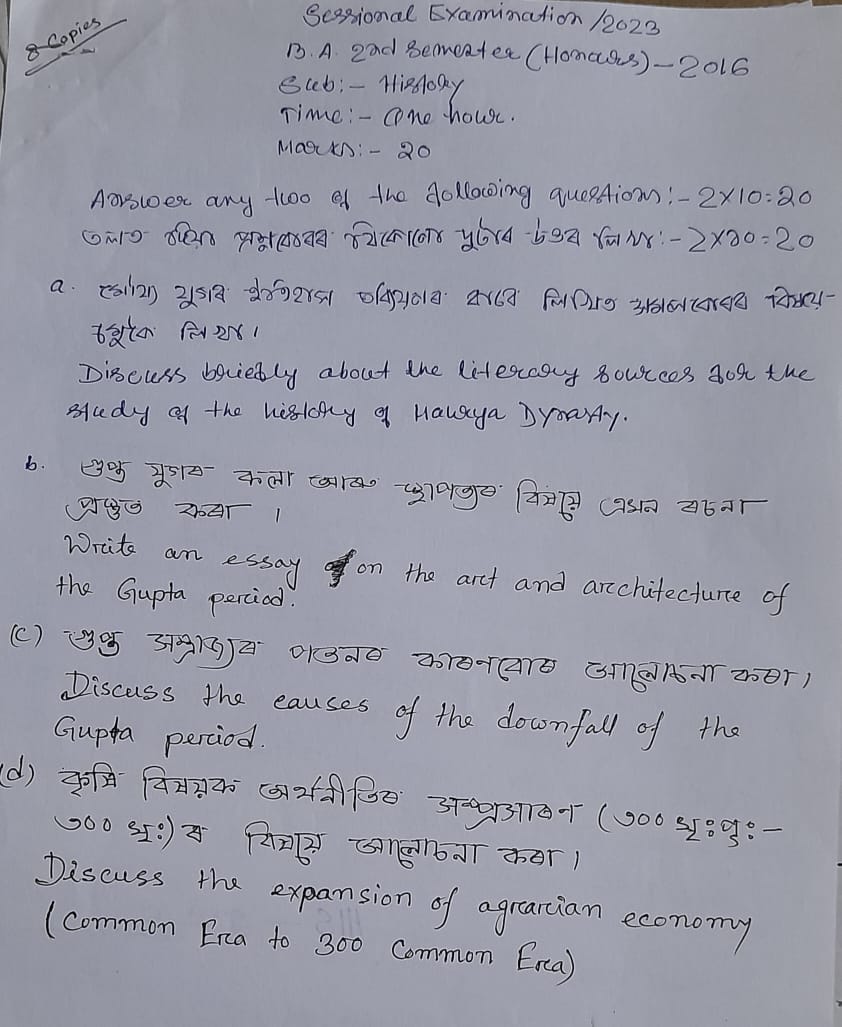 8 Copies
Sessional Examination /2023
B.A. 2nd Semester (Honours) - 2016
Sub:- History
Time:- One hour.
Marks:- 20
Answer any two of the following questions:- 2X10=20
তলত দিয়া প্ৰশ্নবোৰৰ যিকোনো দুটাৰ উত্তৰ লিখা:- 2X10=20
a. মৌৰ্য্য যুগৰ ইতিহাস অধ্যয়নৰ বাবে লিখিত সমলবোৰৰ বিষয়ে
চমুকৈ লিখা।
Discuss briefly about the literary sources for the
study of the history of Maurya Dynasty.
b. গুপ্ত যুগৰ কলা আৰু স্থাপত্যৰ বিষয়ে এখন ৰচনা
প্ৰস্তুত কৰা ।
Write an essay on the art and architecture of
the Gupta period.
(c) গুপ্ত সম্ৰাজ্যৰ পতনৰ কাৰণবোৰ আলোচনা কৰা।
Discuss the causes of the downfall of the
Gupta period.
(d) কৃষি বিষয়ক অৰ্থনীতিৰ সম্প্ৰসাৰণ (৩০০ খ্ৰীঃপূঃ-
৩০০ খ্ৰীঃ) ৰ বিষয়ে আলোচনা কৰা।
Discuss the expansion of agrarian economy
(Common Era to 300 Common Era)